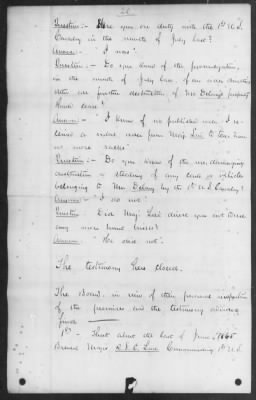 Question:- Were you on duty with the 1st U.S.
Cavalry in the month of July last?
Answer:- "I was".
Question:- Do you know of the promulgation,
in the month of July last, of an order
after the further destruction of Mr property
should cease?
Answer:- "I know of no published order. I re-
ceived a verbal order from Maj. to tear down
no more".
Question:- Do you know of the
destruction or stealing of any tools or vehicles
belonging to Mr. by the 1st U.S. Cavalry?
Answer:- "I do not".
Question Did Maj. direct you not to use
any more
Answer:- "He did not".
The testimony here closed.
The Board, in view of their personal inspection
of the premises and the testimony
finds
1st - That about the last of June, 1865
Brevet Major Commanding 1st U.S.